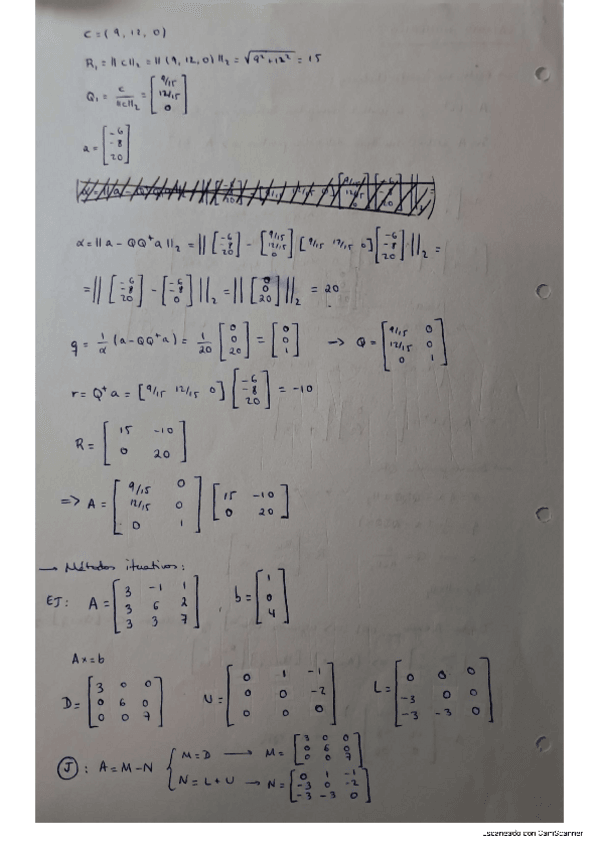 c = (9, 12, 0)
R₁ = ‖c‖₂ = ‖(9, 12, 0)‖₂ = √(9² + 12²) = 15
Q₁ = c/‖c‖₂ = [9/15; 12/15; 0]
a = [-6; -8; 20]
α = ‖a - QQ⁺a‖₂ = ‖[-6; -8; 20] - [9/15; 12/15; 0] [9/15 12/15 0] [-6; -8; 20]‖₂ =
= ‖[-6; -8; 20] - [-6; -8; 0]‖₂ = ‖[0; 0; 20]‖₂ = 20
q = 1/α (a - QQ⁺a) = 1/20 [0; 0; 20] = [0; 0; 1] → Q = [9/15 0; 12/15 0; 0 1]
r = Q⁺a = [9/15 12/15 0] [-6; -8; 20] = -10
R = [15 -10; 0 20]
=> A = [9/15 0; 12/15 0; 0 1] [15 -10; 0 20]
→ Métodos iterativos:
EJ: A = [3 -1 1; 3 6 2; 3 3 7] b = [1; 0; 4]
Ax = b
D = [3 0 0; 0 6 0; 0 0 7] U = [0 1 -1; 0 0 -2; 0 0 0] L = [0 0 0; -3 0 0; -3 -3 0]
(J): A = M - N { M = D → M = [3 0 0; 0 6 0; 0 0 7]
N = L + U → N = [0 1 -1; -3 0 -2; -3 -3 0]
Escaneado con CamScanner